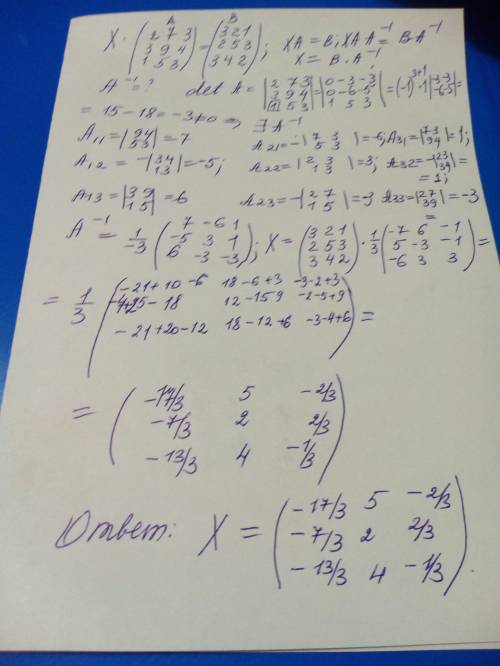 X · (2 7 3 / 3 9 4 / 1 5 3) = (3 2 1 / 2 5 3 / 3 4 2); XA = B; XAA⁻¹ = BA⁻¹
A B
X = B·A⁻¹
A⁻¹ = ? det A = |2 7 3 / 3 9 4 / 1 5 3| = |0 -3 -3 / 0 -6 -5 / 1 5 3| = (-1)³⁺¹·1 |-3 -3 / -6 -5| =
= 15 - 18 = -3 ≠ 0 ⇒ ∃ A⁻¹
A11 = |9 4 / 5 3| = 7 A21 = -|7 3 / 5 3| = -6; A31 = |7 3 / 9 4| = 1;
A12 = -|3 4 / 1 3| = -5; A22 = |2 3 / 1 3| = 3; A32 = -|2 3 / 3 9| = = 1;
A13 = |3 9 / 1 5| = 6 A23 = -|2 7 / 1 5| = -3 A33 = |2 7 / 3 9| = -3
A⁻¹ = 1/-3 (7 -6 1 / -5 3 1 / 6 -3 -3); X = (3 2 1 / 2 5 3 / 3 4 2) · 1/3 (-7 6 -1 / 5 -3 -1 / -6 3 3) =
= 1/3 (-21+10-6 18-6+3 -3-2+3
-14+25-18 12-15 9 -2-5+9
-21+20-12 18-12+6 -3-4+6) =
= (-17/3 5 -2/3
-7/3 2 2/3
-13/3 4 -1/3)
Ответ: X = (-17/3 5 -2/3
-7/3 2 2/3
-13/3 4 -1/3).